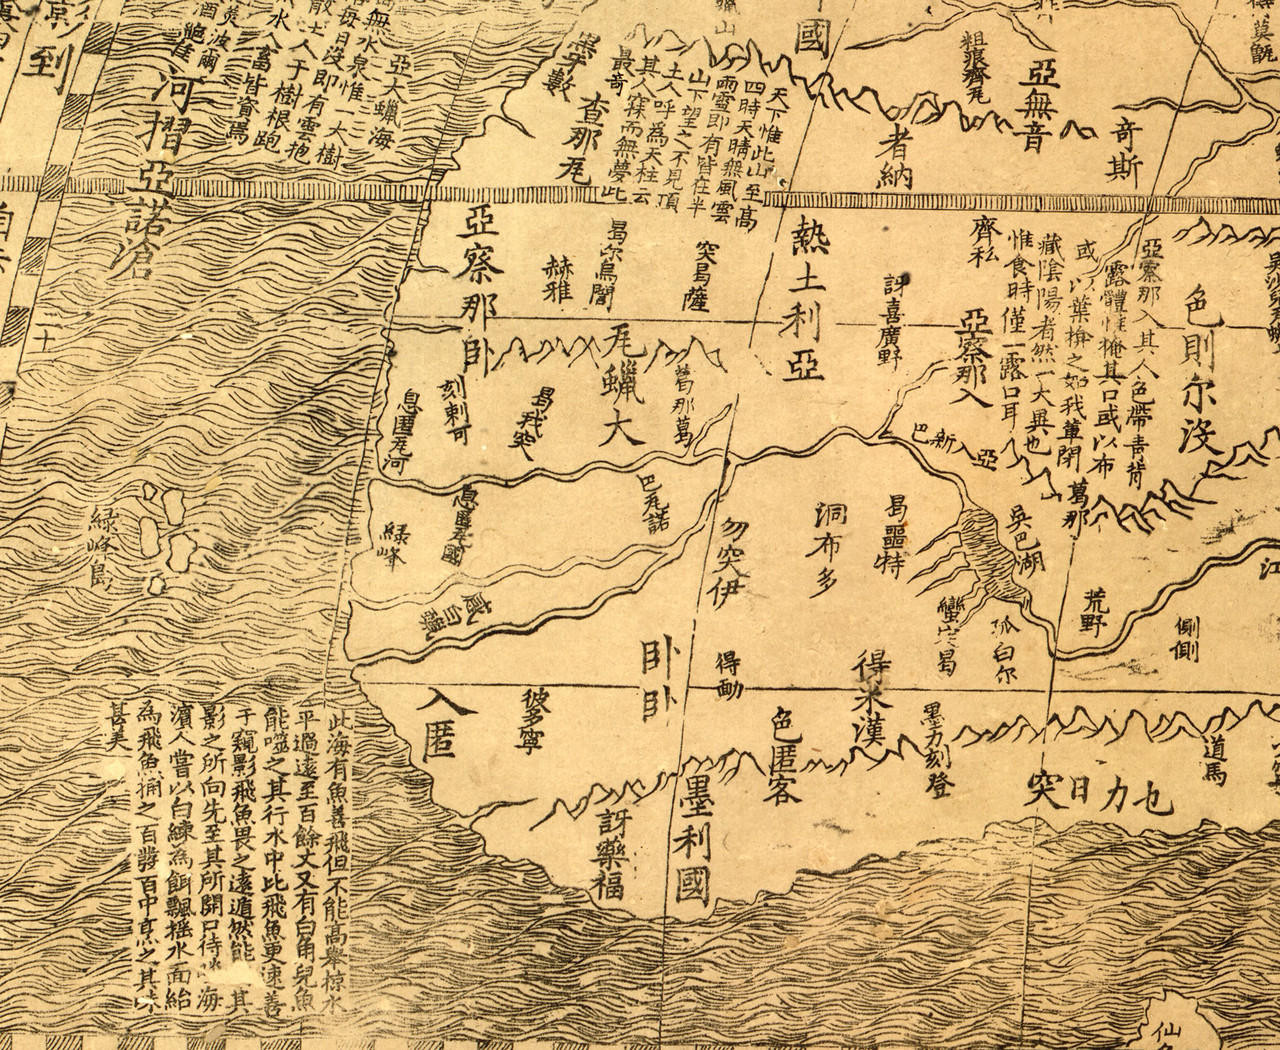 到
河摺亞諾滄
亞大蠟海
無水泉惟一二大樹
每日沒即有雲抱
人于樹根跑
水人畜皆資焉
查那
天下惟此山至高
四時天晴無風雲
雨雪即有皆在半
山下望之不見頂
土人呼為天柱云
其人寐而無夢此
最奇
國
亞無音
者納
奇斯
亞察那
赫雅
突曷薩
熱土利亞
齊私
訝喜廣野
亞察那入
亞察那入其人色帶青
露體惟掩其口或以布
或以葉揜之如我輩閉
藏陰陽者然一大異也
惟食時僅一露口耳
色則尔沒
臥
蠟大
葛那葛
刻剌可
曷我突
巴新入亞
葛那
綠峰島
綠峰
勿突伊
洞布多
曷噩特
吳巴湖
江
荒野
側側
蠻突曷
孤白尔
臥臥
得動
得米漢
入匿
彼多寧
色匿客
墨力刻登
道馬
突日力七
訝藥福
墨利國
此海有魚善飛但不能高舉掠水
平過遠至百餘丈又有白角兒魚
能噬之其行水中比飛魚更速善
于窺影飛魚畏之遠遁然能 其
影之所向先至其所開口待 海
濱人嘗以白練為餌飄搖水面紿
為飛魚捕之百發百中烹之其味
甚美
仙